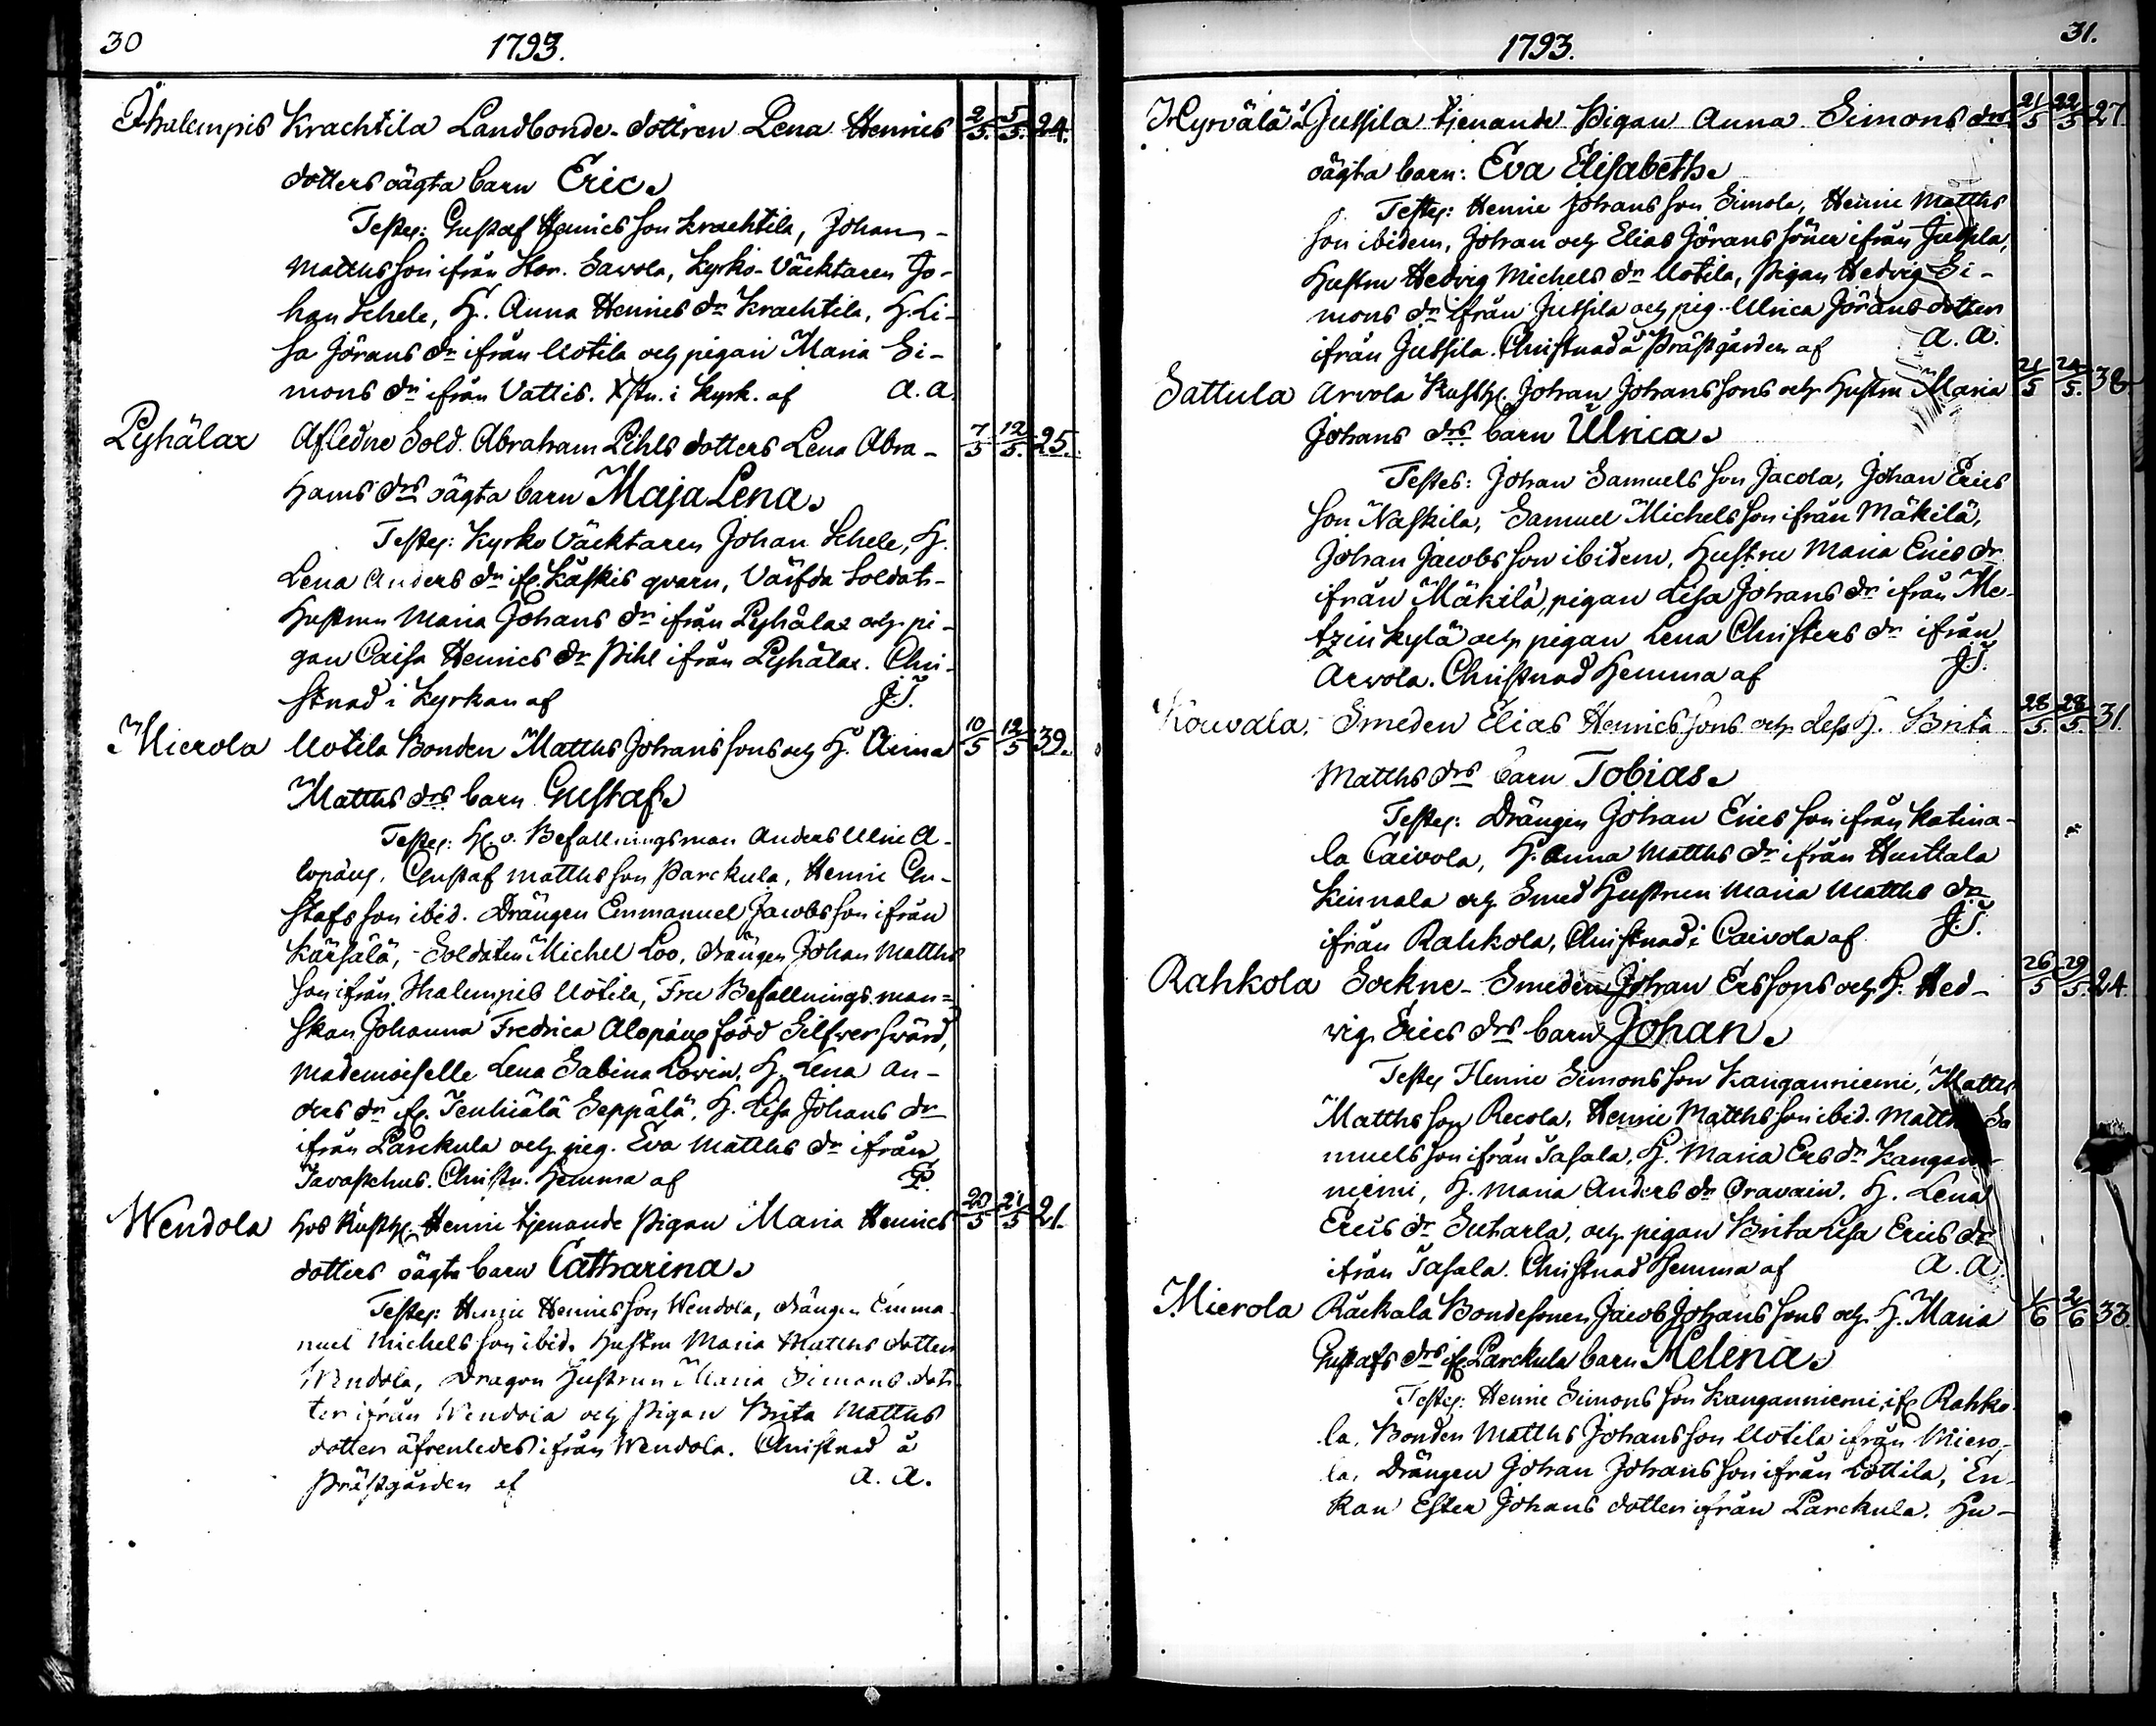 30
1793.
Ihalempis Krachtila Landbonde-dottren Lena Henrics 2/5. 5/5. 24.
dotters oägta barn Eric.
Testes: Gustaf Henrics son Krachtila, Johan
Matths son ifrån Stor. Sawola, Kyrko-Väcktaren Jo-
han Schele, H. Anna Henrics dr Krachtila, H. Li-
sa Jörans dr ifrån Uotila och pigan Maria Si-
mons dr ifrån Vattis. Xstn. i Kyrk. af A.A.
Pyhälax Afledne Sold. Abraham Pihls dotters Lena Abra- 7/5 12/5. 25.
hams drs oägta barn Maja Lena.
Testes: Kyrko Väcktaren Johan Schele, H.
Lena Anders dr ifr. Käskis qvarn, Värfda Soldats-
Hustrun Maria Johans dr ifrån Pyhälax och pi-
gan Caisa Henrics dr Pihl ifrån Pyhälax. Chri-
stnad i Kyrkan af J.T.
Mierola Uotila Bonden Matths Johans sons och H. Anna 10/5 12/5 39.
Matths drs barn Gustaf.
Testes: Hr. v. Befallningsman Anders Ulric A-
lopæus, Gustaf Matths son Parckula, Henric Gu-
stafs son ibid. Drängen Emmanuel Jacobs son ifrån
Kärsälä, Soldaten Michel Loo, drängen Johan Matths
son ifrån Ihalempis Uotila, Fru Befallnings.man=
skan Johanna Fredrica Alopæus född Silfwerswärd,
Mademoiselle Lena Sabina Lovin, H. Lena An-
ders dr ifr. Ieuhiälä Seppälä, H. Lisa Johans dr
ifrån Parckula och pig. Eva Matths dr ifrån
Tavastehus. Christn. hemma af
Wendola hos Rusth. Henric tjenande Pigan Maria Henrics 20/5 21/5 21.
dotters oägta barn Catharina.
Testes: Henric Henrics son Wendola, drängen Emma-
nuel Michels son ibid. Hustru Maria Matths dotter
Wendola, Dragon Hustrun Maria Simons dot-
ter ifrån Wendola och Pigan Brita Matths
dotter äfvenledes ifrån Wendola. Christnad å
Prästgården af A. A.
1793.
31.
Hyrvälä å Jussila tjenande Pigan Anna Simons drs 21/5 22/5 27
oägta barn: Eva Elisabeth.
Testes: Henric Johans son Simola, Henric Matths
son ibidem, Johan och Elias Jörans söner ifrån Jussila,
Hustru Hedvig Michels dr Uotila, Pigan Hedvig Si-
mons dr ifrån Jussila och pig. Ulrica Jörans dotter
ifrån Jussila. Christnad å Prästgården af A. A.
Sattula Arvola Rusth. Johan Johans sons och Hustru Maria 21/5 24/5. 38
Johans drs barn Ulrica.
Testes: Johan Samuels son Jacola, Johan Erics
son Naskila, Samuel Michels son ifrån Mäkilä,
Johan Jacobs son ibidem, Hustru Maria Erics dr
ifrån Mäkilä, pigan Lisa Johans dr ifrån Me-
tzinkylä och pigan Lena Christers dr ifrån
Arvola. Christnad hemma af J.T.
Kouvala, Smeden Elias Henrics sons och dess H. Brita 28/5. 28/5. 31.
Matths drs barn Tobias.
Testes: Drängen Johan Erics son ifrån Katina-
la Caivola, H. Anna Matths dr ifrån Hurttala
Kinnala och Smed Hustrun Maria Matths dr
ifrån Rahkola, Christnad i Caivola af J.T.
Rahkola Sockne-Smeden Johan Ers sons och H. Hed- 26/5 29/5. 24.
vig Erics drs barn Johan.
Testes Henric Simons son Kanganniemi, Matths
Matths son Recola, Henric Matths son ibid. Matths Sa
muels son ifrån Tasala, H. Maria Ers dr Kangan-
niemi, H. Maria Anders dr Oravain, H. Lena
Erics dr Sutarla, och pigan Brita Lisa Erics dr
ifrån Tasala. Christnad hemma af A. A.
Mierola Räckälä Bondesonen Jacob Johans sons och H. Maria 1/6 2/6 33.
Gustafs drs ifr. Parckula barn Helena.
Testes: Henric Simons son Kanganniemi ifr. Rahko-
la, Bonden Matths Johans son Uotila ifrån Miero-
la, Drängen Johan Johans son ifrån Lottila, En-
kan Ester Johans dotter ifrån Parckula. Hu-